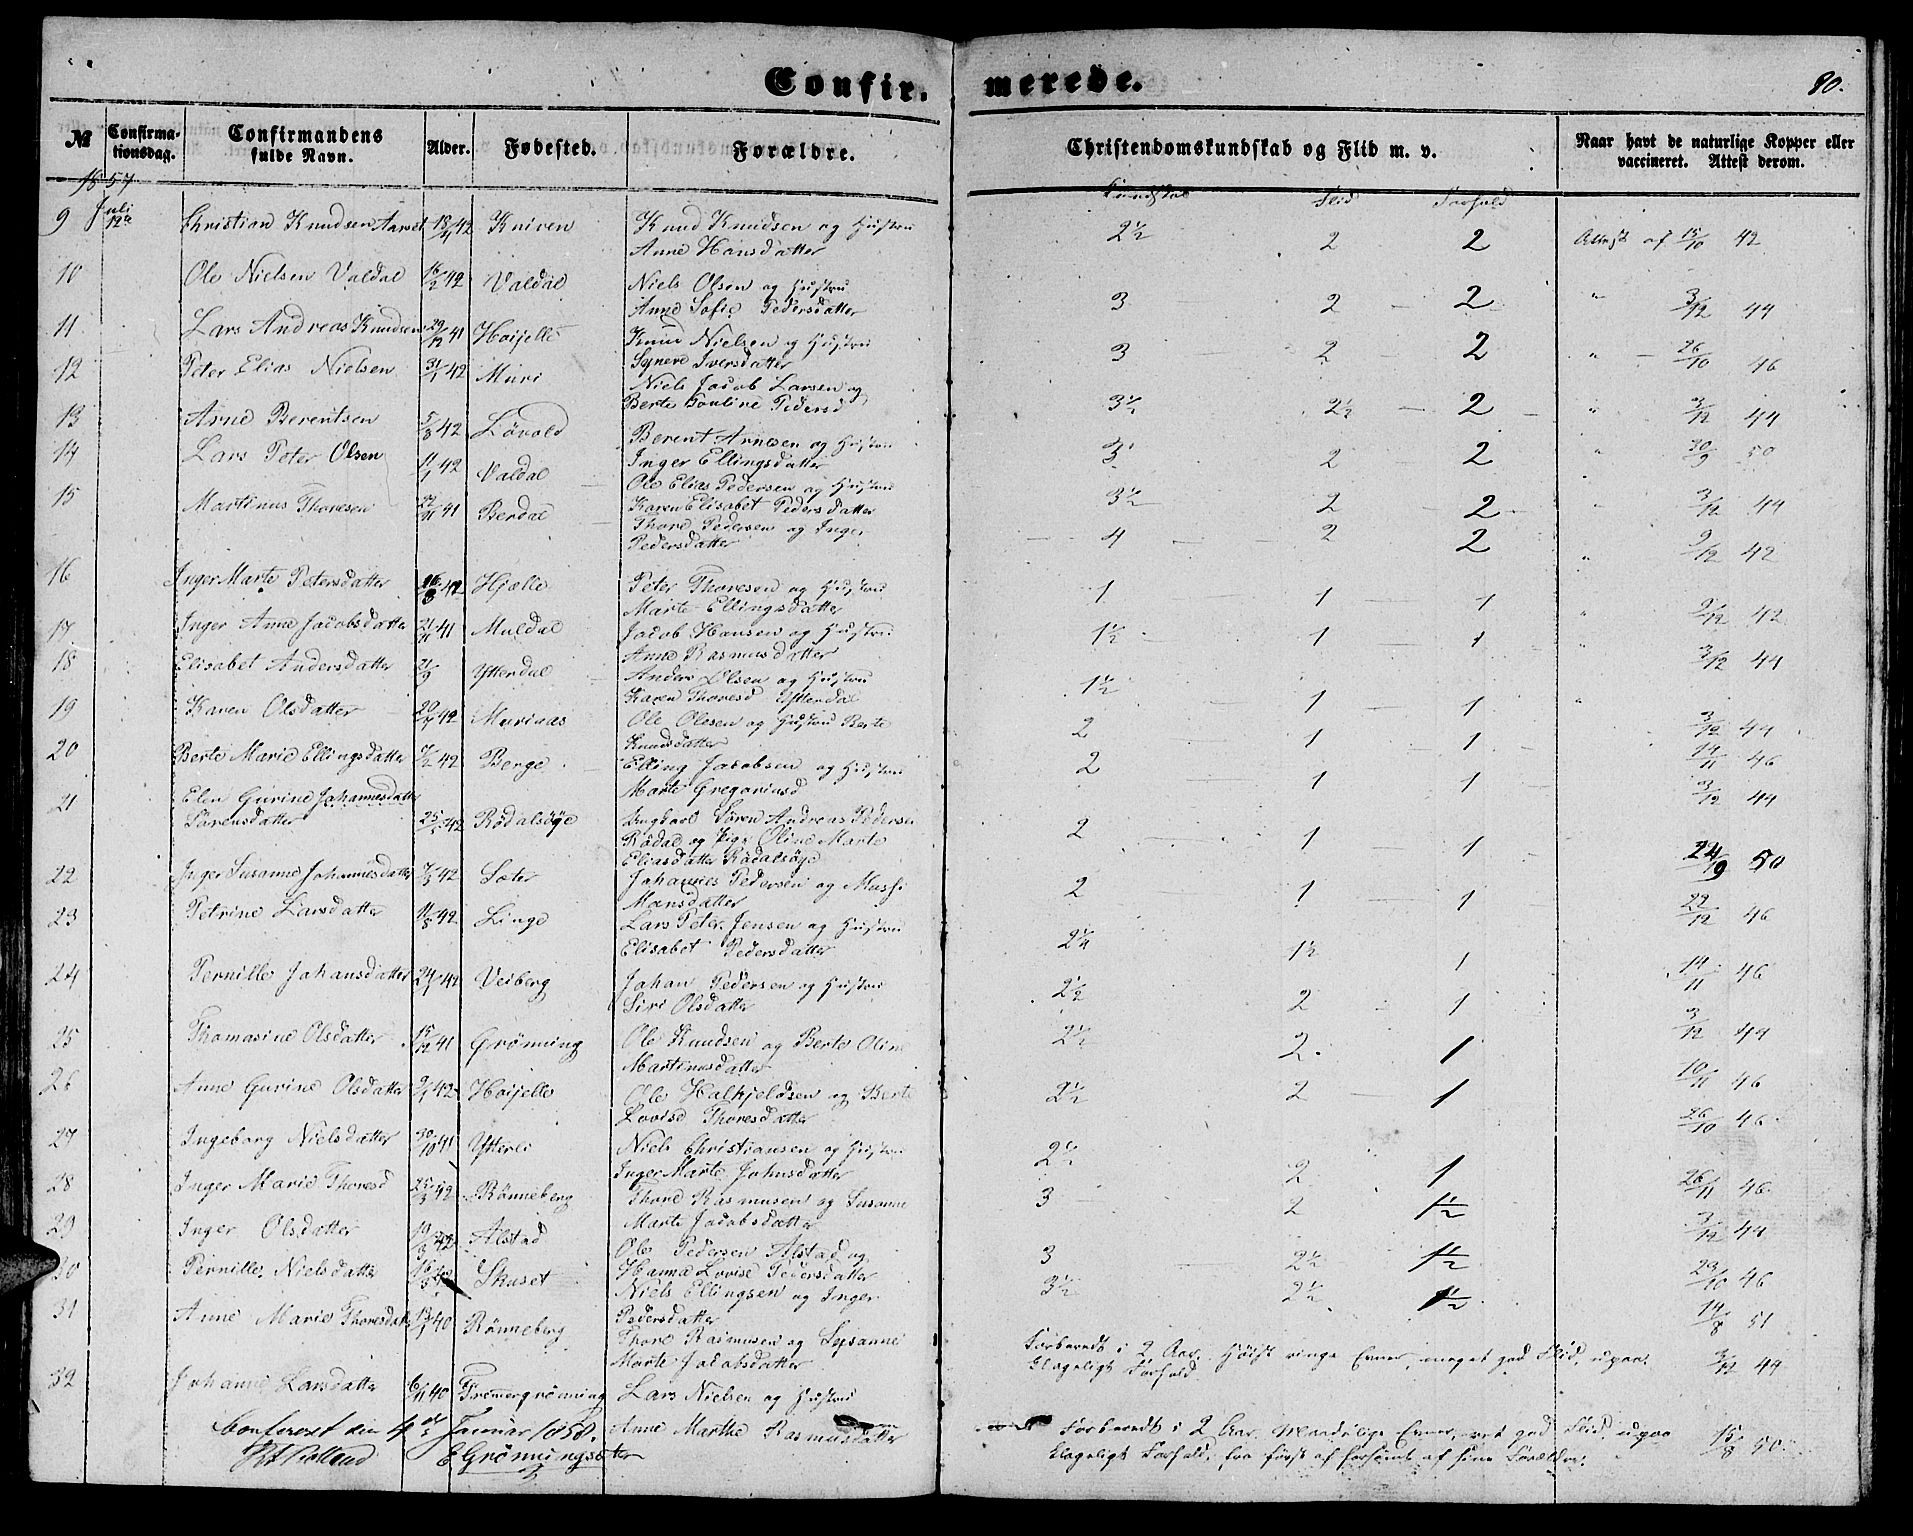 Confir. merede. 80.
№ Confirma- Confirmandens Alder. Fødested. Forældre. Christendomskundskab og Flid m. v. Naar havt de naturlige Kopper eller
tionsdag. fulde Navn. vaccineret. Attest derom.
1857 Kundskab Flid Forhold
9 Juli 12te Christian Knudsen Aarset 18/1 42 Kniven Knud Knudsen og Hustru 2½ 2 2 Attest af 15/10 42
Anne Hansdatter
10 Ole Nielsen Valdal 16/2 42 Valdal Niels Olsen og Hustru 3 2 2 " 3/12 44
Anne Sofie Pedersdatter
11 Lars Andreas Knudsen 29/12 41 Hoijelle Knud Nielsen og Hustru 3 2 2 " 26/10 46
Synere Iversdatter
12 Peter Elias Nielsen 31/1 42 Muri Niels Jacob Larsen og 3½ 2½ 2 " 3/12 44
Berte Pouline Pedersd
13 Arne Berentsen 5/8 42 Løvold Berent Arnesen og Hustru 3 2 2 " 30/9 50
Inger Ellingsdatter
14 Lars Peter Olsen 11/1 42 Valdal Ole Elias Pedersen og Hustru 3½ 2 2 " 3/12 44
Karen Elisabet Pedersdatter
15 Martinus Thoresen 22/11 41 Berdal Thore Pedersen og Inger 4 2 2 " 9/12 42
Pedersdatter
16 Inger Marte Petersdatter 26/8 42 Hjelle Peter Thoresen og Hustru 1 1 1 " 9/12 42
Marte Ellingsdatter
17 Inger Anne Jacobsdatter 21/11 41 Muldal Jacob Hansen og Hustru 1½ 1 1 " 3/12 44
Anne Rasmusdatter
18 Elisabet Andersdatter 21/9 Ytterdal Anders Olsen og Hustru 1½ 1 1 " 3/12 44
Karen Thoresd Ytterdal
19 Karen Olsdatter 20/7 42 Murinas Ole Olesen og Hustru Berte 2 1 1 14/11 46
Knudsdatter
20 Berte Marie Ellingsdatter 7/2 42 Berge Elling Jacobsen og Hustru 2 1 1 3/12 44
Marte Gregoriusd
21 Elen Gurine Johannesdatter
Sørensdatter 25/5 42 Rødalsøye Ungkarl Søren Andreas Pedersen 2 1 1 24/9 50
Rødal og Pige Oline Marte
Eliasdatter Rødalsøye
22 Inger Susanne Johannesdatter 7/3 42 Sæter Johannes Pedersen og Massi 2 1 1 22/12 46
Monsdatter
23 Petrine Larsdatter 11/8 42 Linge Lars Peter Jensen og Hustru 2¼ 1½ 1 14/11 46
Elisabet Pedersdatter
24 Pernille Johansdatter 24/7 42 Veiberg Johan Pedersen og Hustru 2½ 2 1 3/12 44
Siri Olsdatter
25 Thomasine Olsdatter 15/12 41 Grønning Ole Knudsen og Berte Oline 2½ 2 1 10/11 46
Martinusdatter
26 Anne Gurine Olsdatter 9/1 42 Hoijelle Ole Halkjeldsen og Berte 2½ 2 1 26/10 46
Lovise Thoresdatter
27 Ingeborg Nielsdatter 30/10 41 Ytterli Niels Christiansen og Hustru 2½ 2 1 26/11 46
Inger Marte Johnsdatter
28 Inger Marie Thoresd 25/3 42 Rønneberg Thore Rasmusen og Susanne 3 2 1½ 3/12 44
Marte Jacobsdatter
29 Inger Olsdatter 19/3 42 Alstad Ole Pedersen Alstad og 3 2½ 1½ 23/10 46
Hanna Lovise Pedersdatter
30 Pernille Nielsdatter 16/5 Skuset Niels Ellingsen og Inger 3½ 2½ 1½ 14/8 51
Pedersdatter
31 Anne Marie Thoresdatter 40 Rønneberg Thore Rasmusen og Susanne Forberedt i 2 Aar. Høist ringe Evner, meget god Flid, upaa- 3/12 44
Marte Jacobsdatter klageligt Forhold
32 Johanne Larsdatter 6/11 40 Fremergrønning Lars Nielsen og Hustru
Anne Marthe Rasmusdatter Forberedt i 2 Aar. Maadelige Evner, ret god Flid, upaa- 15/8 50
klageligt Forhold, fra først af forsømt af sine Forældre.
Confereret den 4de Januar 1858.
E Grønningsæter